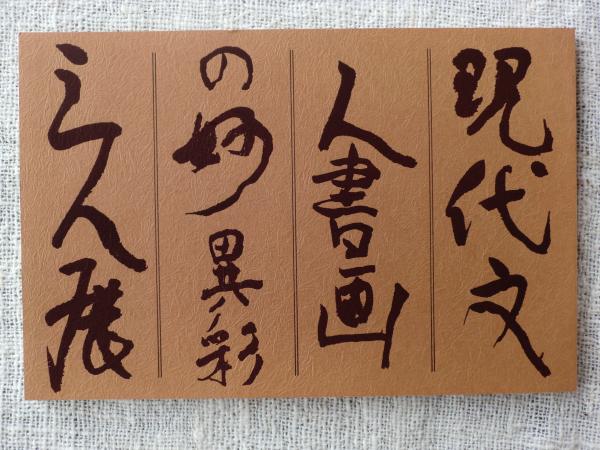 現代文
人書画
の妙異彩
三人展